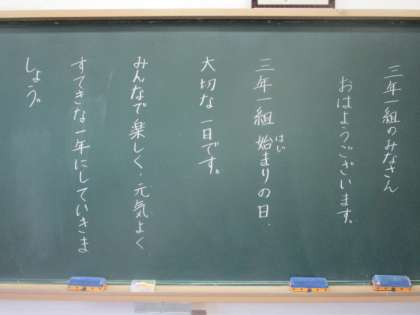 三年一組のみなさん
おはようございます。
三年一組 始まりの日、
はじ
大切な一日です。
みんなで楽しく、元気よく
すてきな一年にしていきま
しょう。